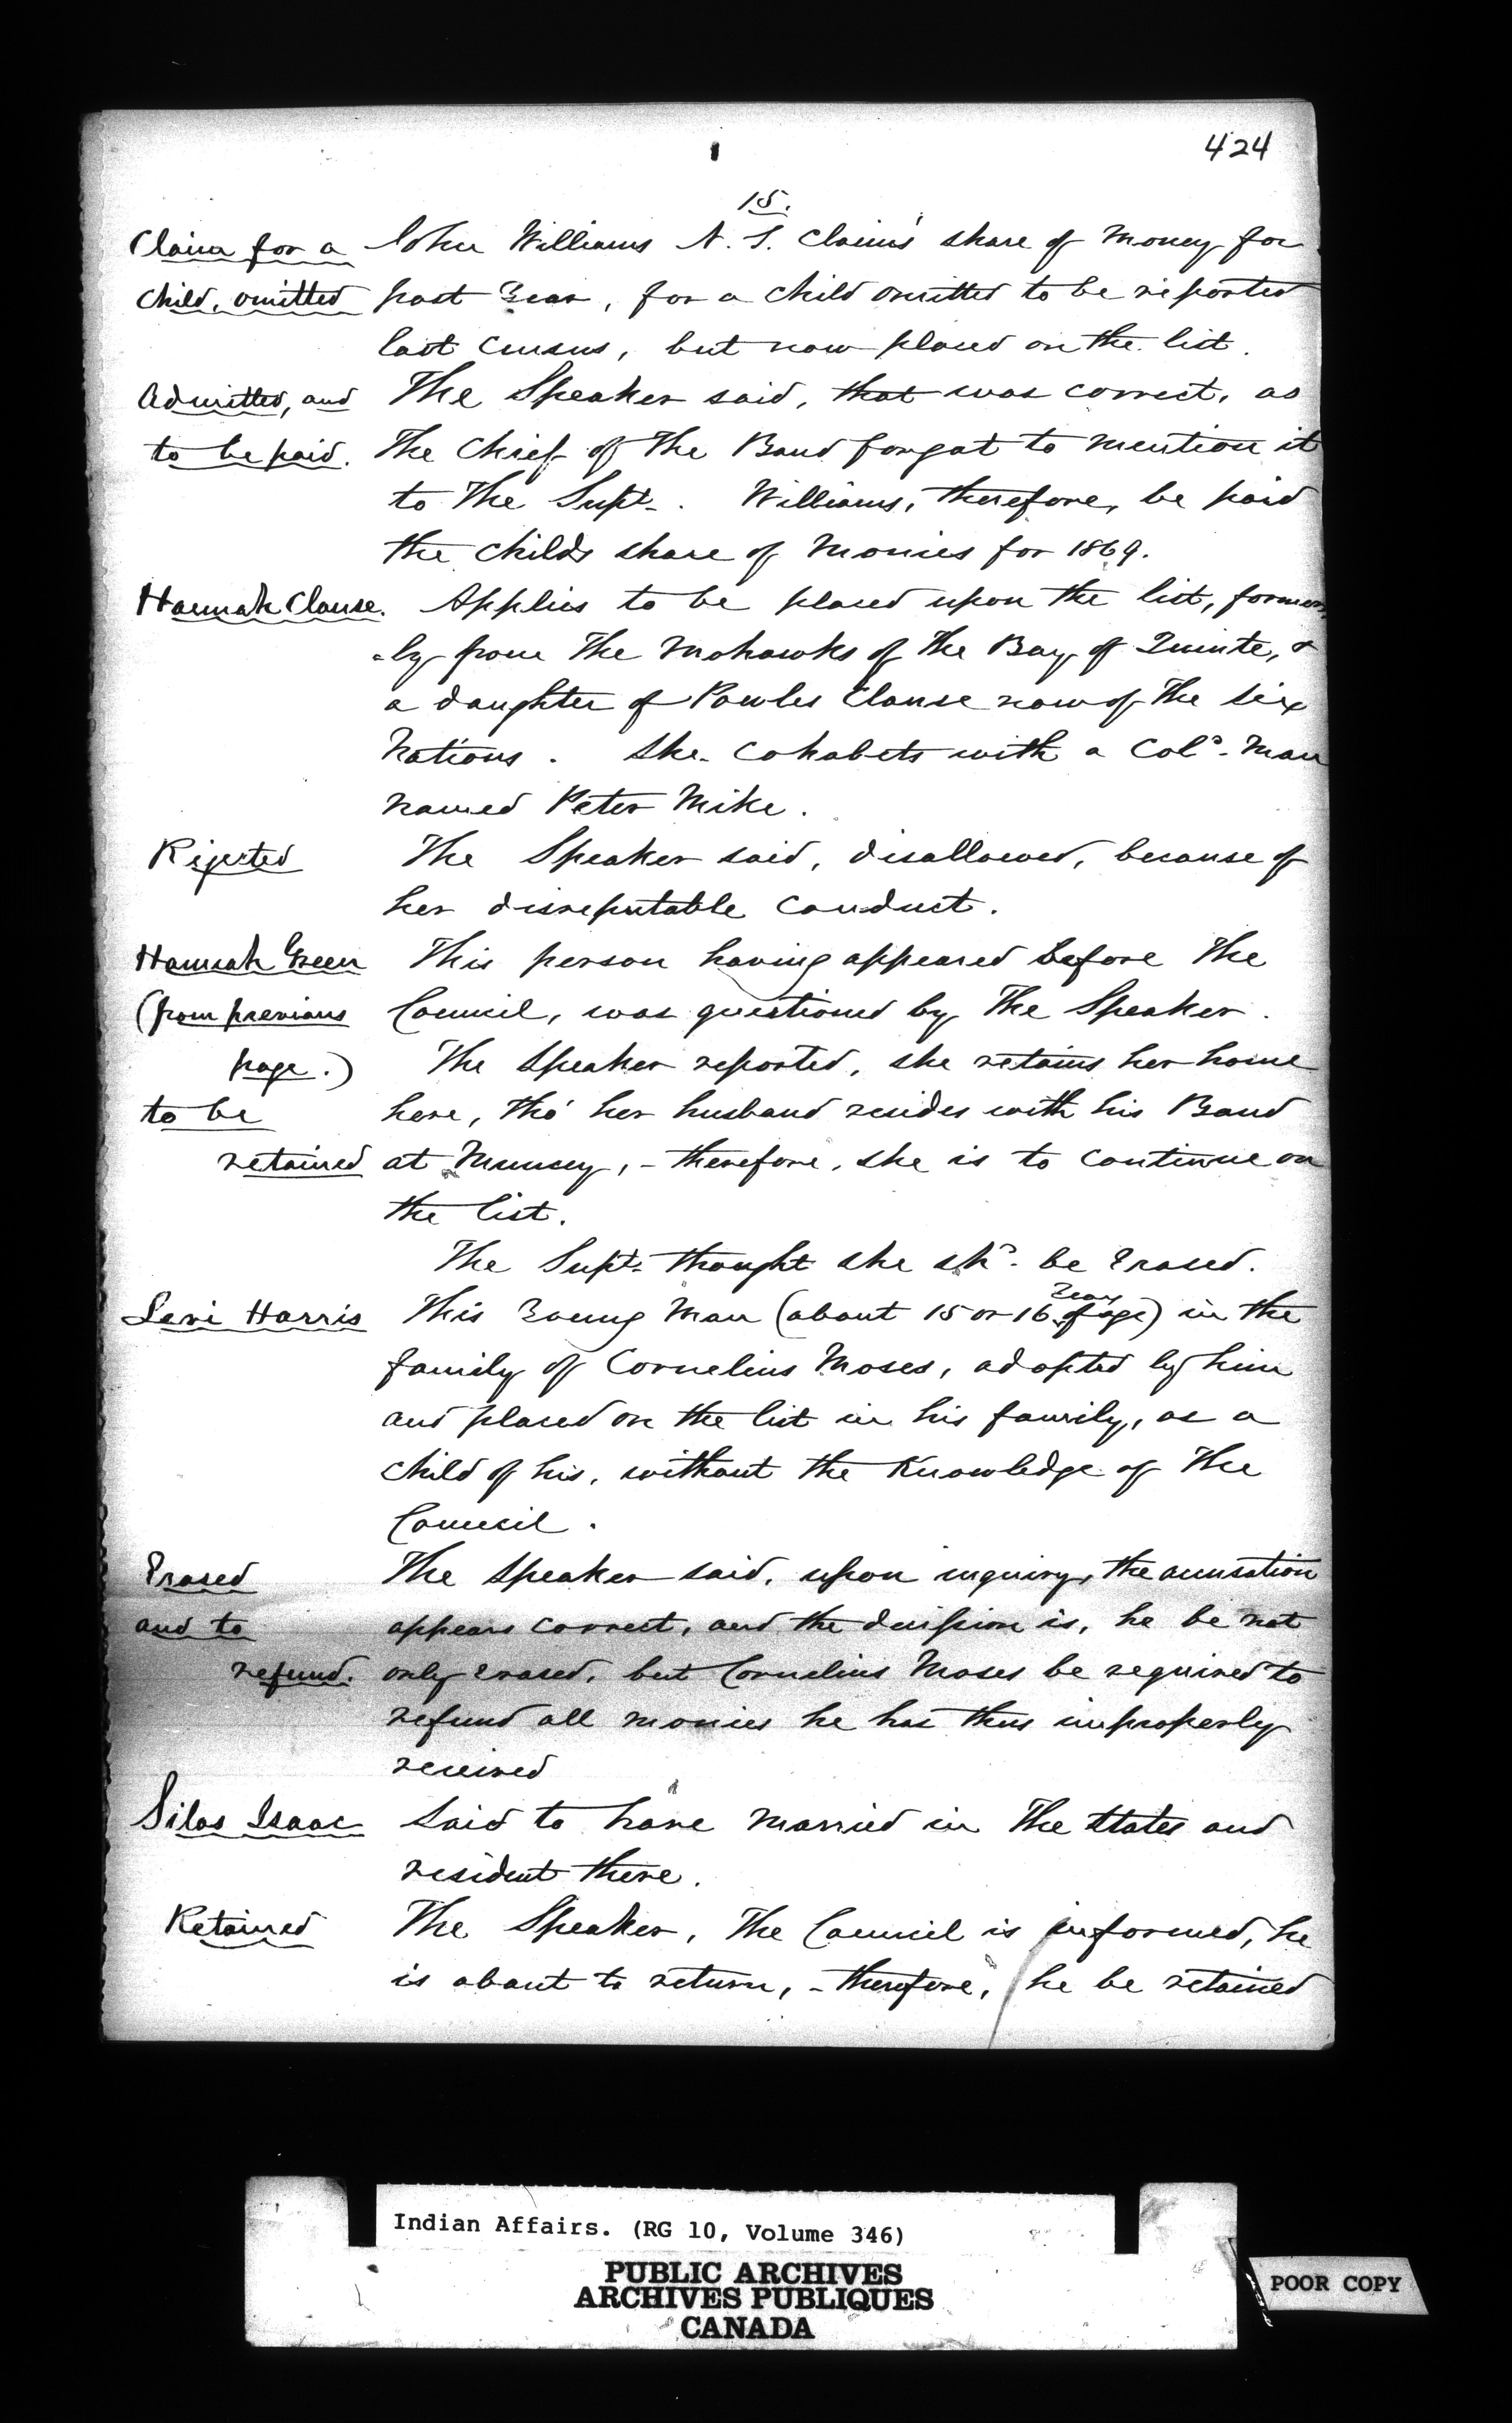 424
15.
Claim for a John Williams N. S. Claims share of Money for
Child, omitted past Year, for a Child omitted to be reported
last Census, but now placed on the list.
Admitted, and The Speaker said, that was correct, as
to be paid. The Chief of The Band forgot to mention it
to The Supt. Williams, therefore, be paid
the Childs share of Monies for 1869.
Hannah Clause. Applies to be placed upon the list, former
-ly from The Mohawks of the Bay of Quinte, &
a daughter of Powles Clause now of The Six
Nations. She Cohabets with a Cold. Man
named Peter Mike.
Rejected The Speaker said, disallowed, because of
her disreputable Conduct.
Hannah Green This person having appeared before The
(from previous Council, was questioned by The Speaker.
page.) The Speaker reported, she retains her home
to be here, tho' her husband resides with his Band
retained at Muncey, - therefore, she is to Continue on
the list.
The Supt. thought she shd. be Erased.
Levi Harris This Young Man (about 15 or 16 Years of age) in the
family of Cornelius Moses, adopted by him
and placed on the list in his family, as a
Child of his, without the Knowledge of The
Council.
Erased The Speaker said, upon inquiry, the accusation
and to appears Correct, and the decission is, he be not
refund. only erased, but Cornelius Moses be required to
refund all monies he has thus improperly
received
Silas Isaac Said to have Married in The States and
resident there.
Retained The Speaker, The Council is informed, he
is about to return, - therefore, he be retained
Indian Affairs. (RG 10, Volume 346)
PUBLIC ARCHIVES
ARCHIVES PUBLIQUES
CANADA
POOR COPY